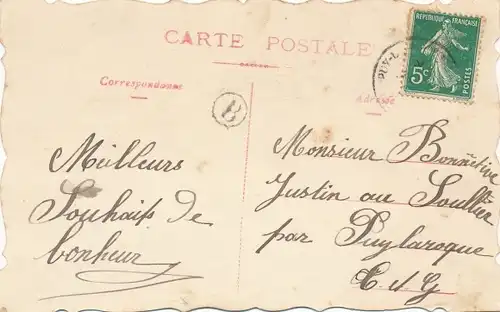 CARTE POSTALE
RÉPUBLIQUE FRANÇAISE
5c
PUY-L
Correspondance
Adresse
B
Meilleurs
Souhaits de
bonheur
Monsieur Bonnetive
Justin au Soulier
par Puylaroque
T. & G